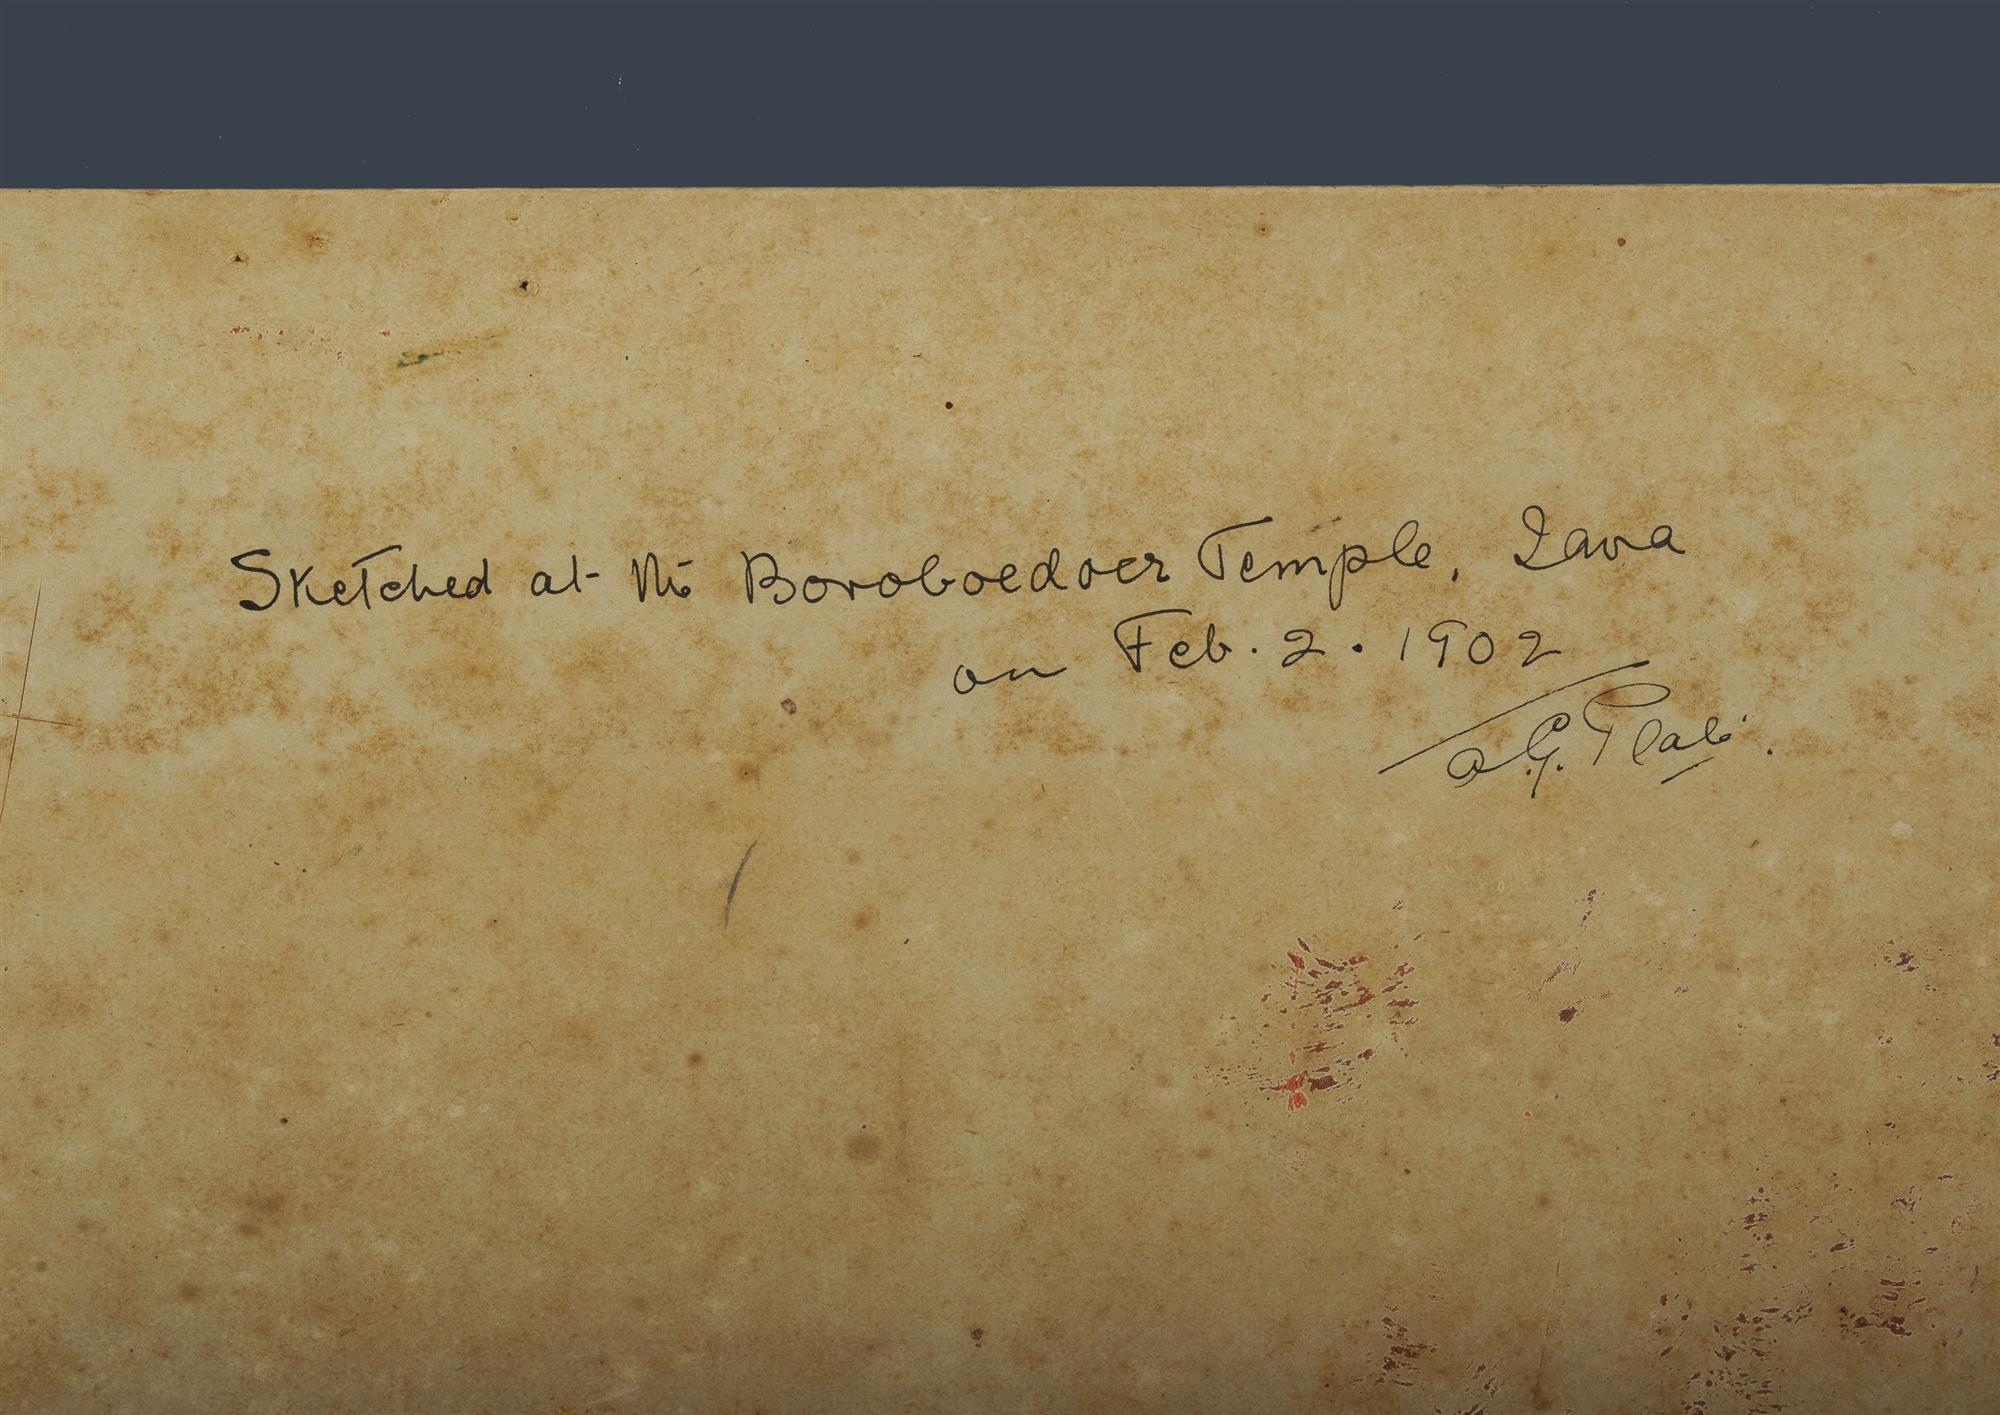 Sketched at the Boroboedoer Temple, Java
on Feb. 2. 1902
A.G. Plate.